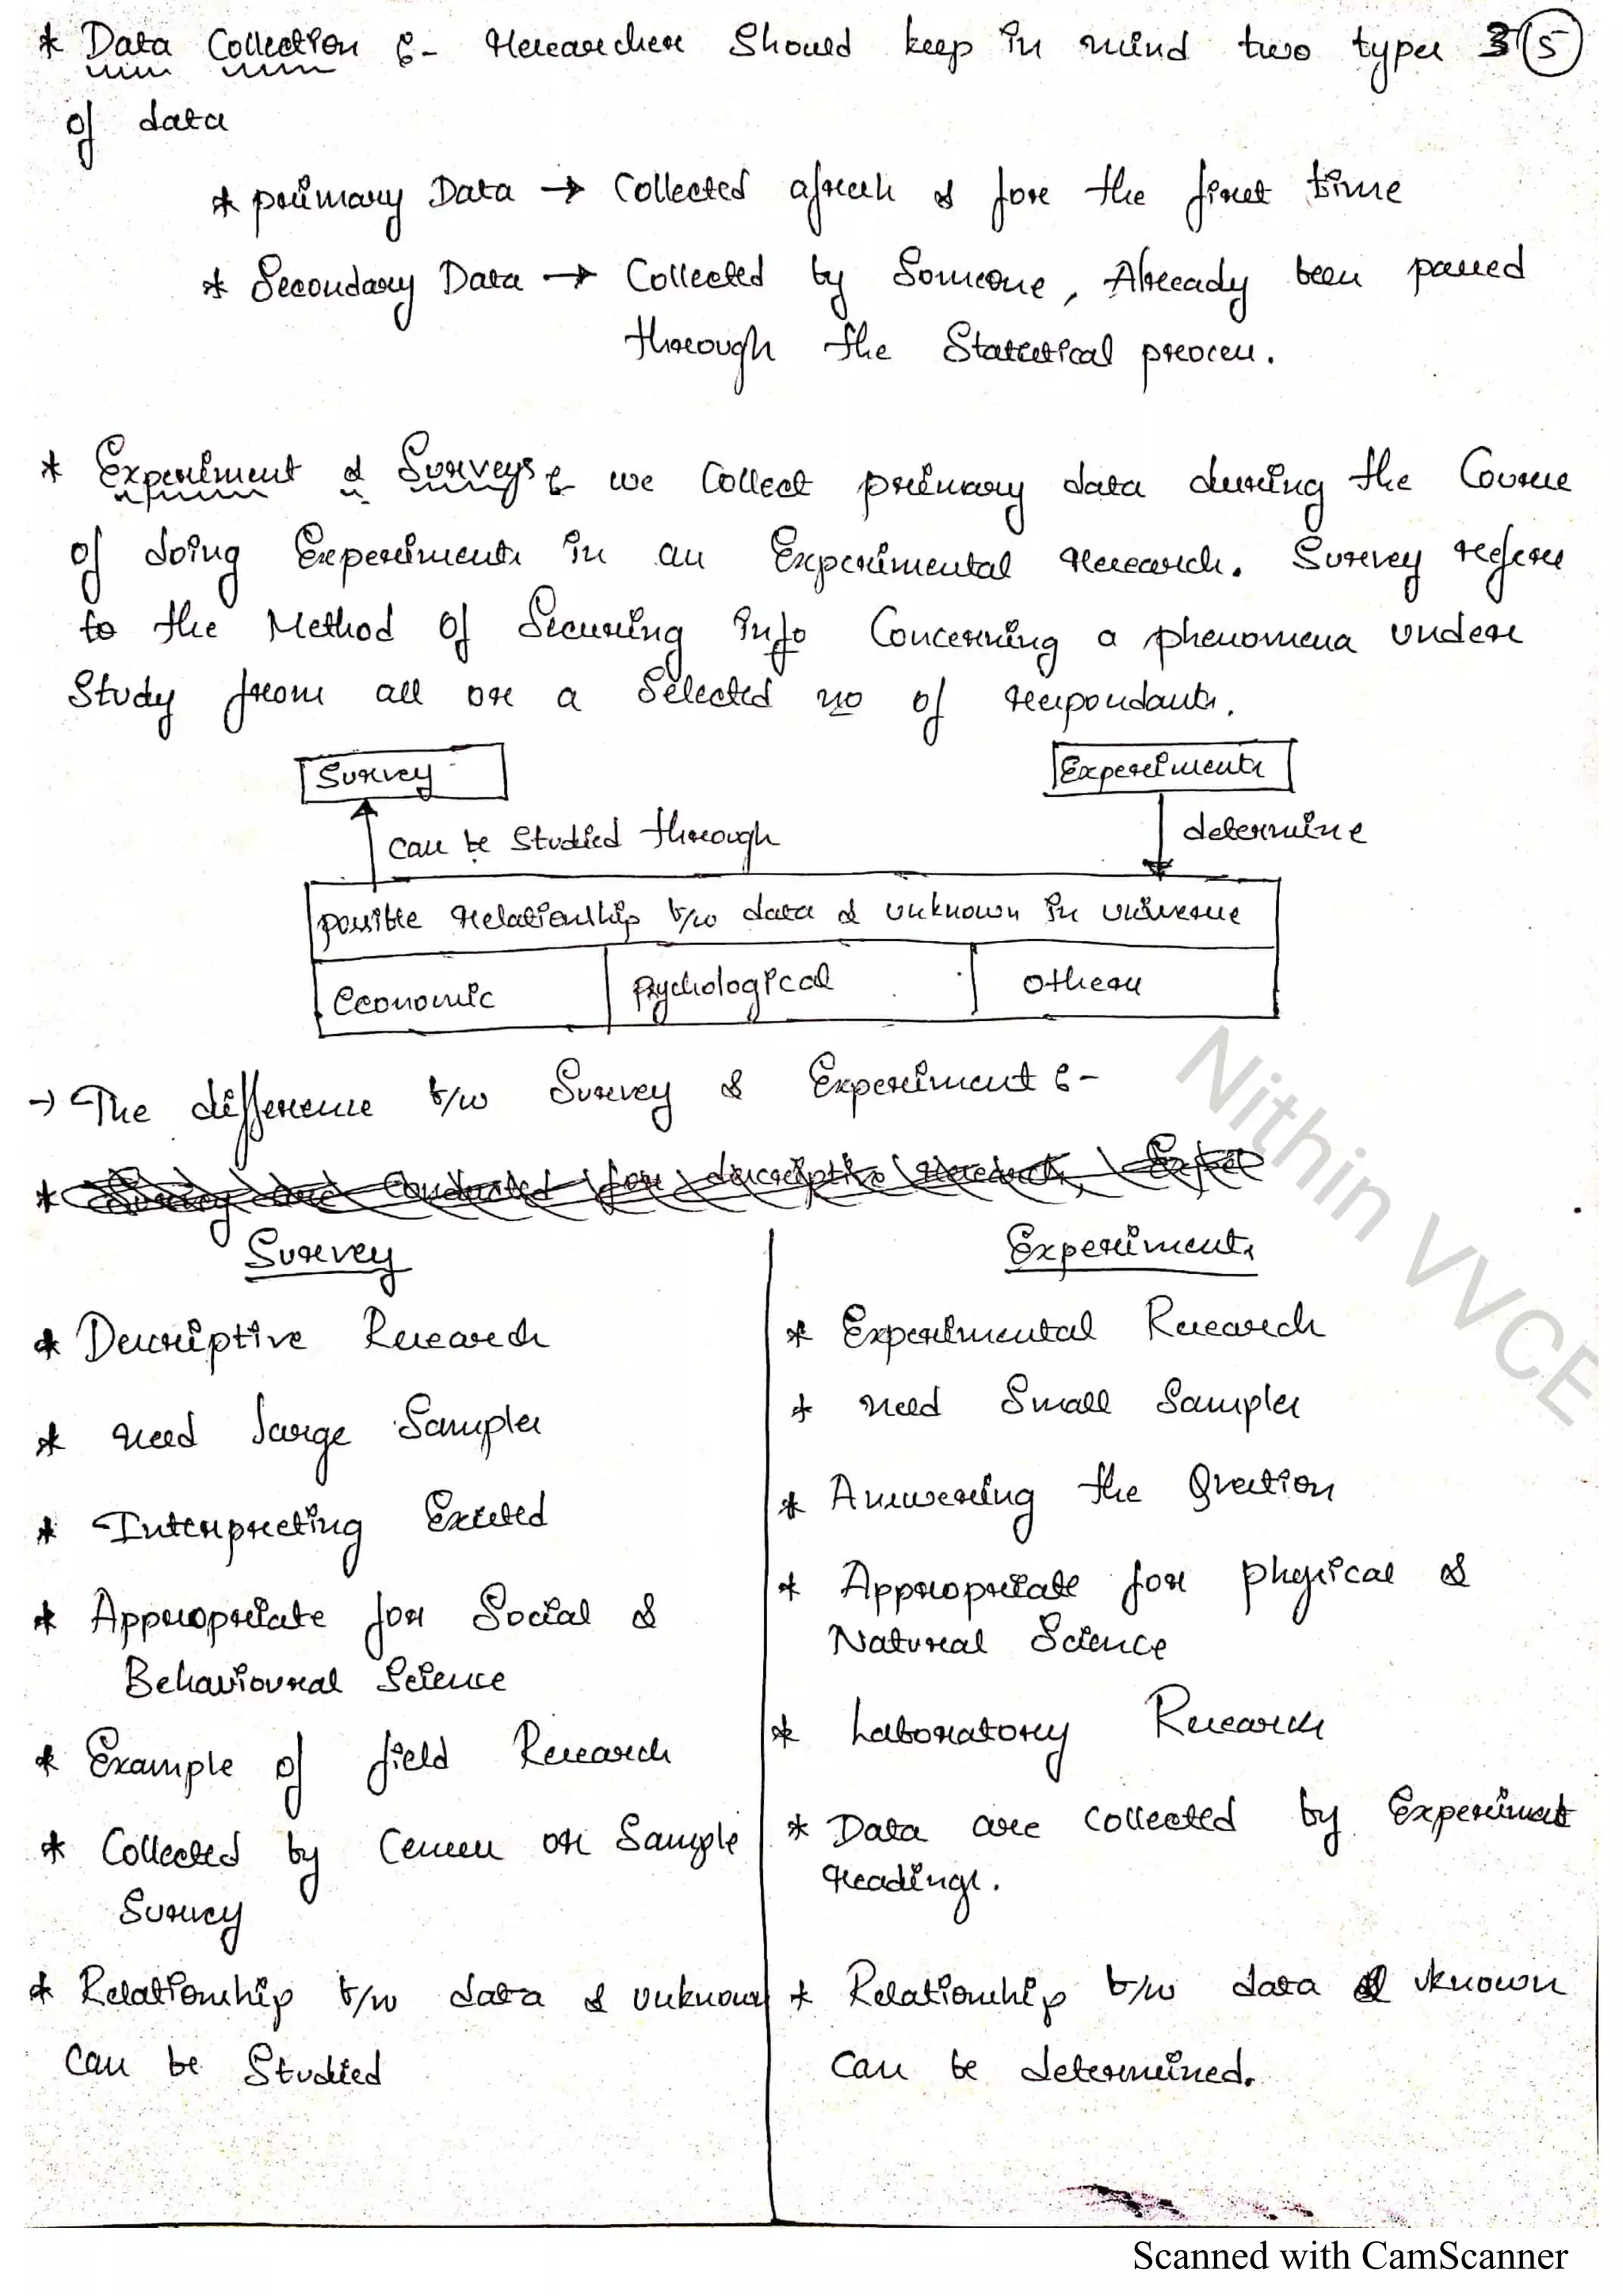 * Data Collection :- Researcher Should keep in mind two types 5
of data
* primary Data → Collected afresh & for the first time
* Secondary Data → Collected by Someone, Already been passed
through the Statistical process.
* Experiment & Surveys :- we Collect primary data during the Course
of doing Experiments in an Experimental research. Survey refers
to the Method of Securing info Concerning a phenomena under
Study from all or a Selected no of respondants.
Survey
Experiments
can be Studied through
determine
possible relationship b/w data & unknown in universe
economic
Psychological
others
→ The difference b/w Survey & Experiment :-
* Survey are Conducted for descriptive research,
Survey
Experiments
* Descriptive Research
* Experimental Research
* need large Samples
* need Small Samples
* Interpreting Existed
* Answering the Question
* Appropriate for Social &
Behavioural Science
* Appropriate for physical &
Natural Science
* Example of field Research
* Laboratory Research
* Collected by Census or Sample
Survey
* Data are collected by Experiment
readings.
* Relationship b/w data & unknown
can be Studied
* Relationship b/w data & uknown
can be determined.
Nithin VVCE
Scanned with CamScanner